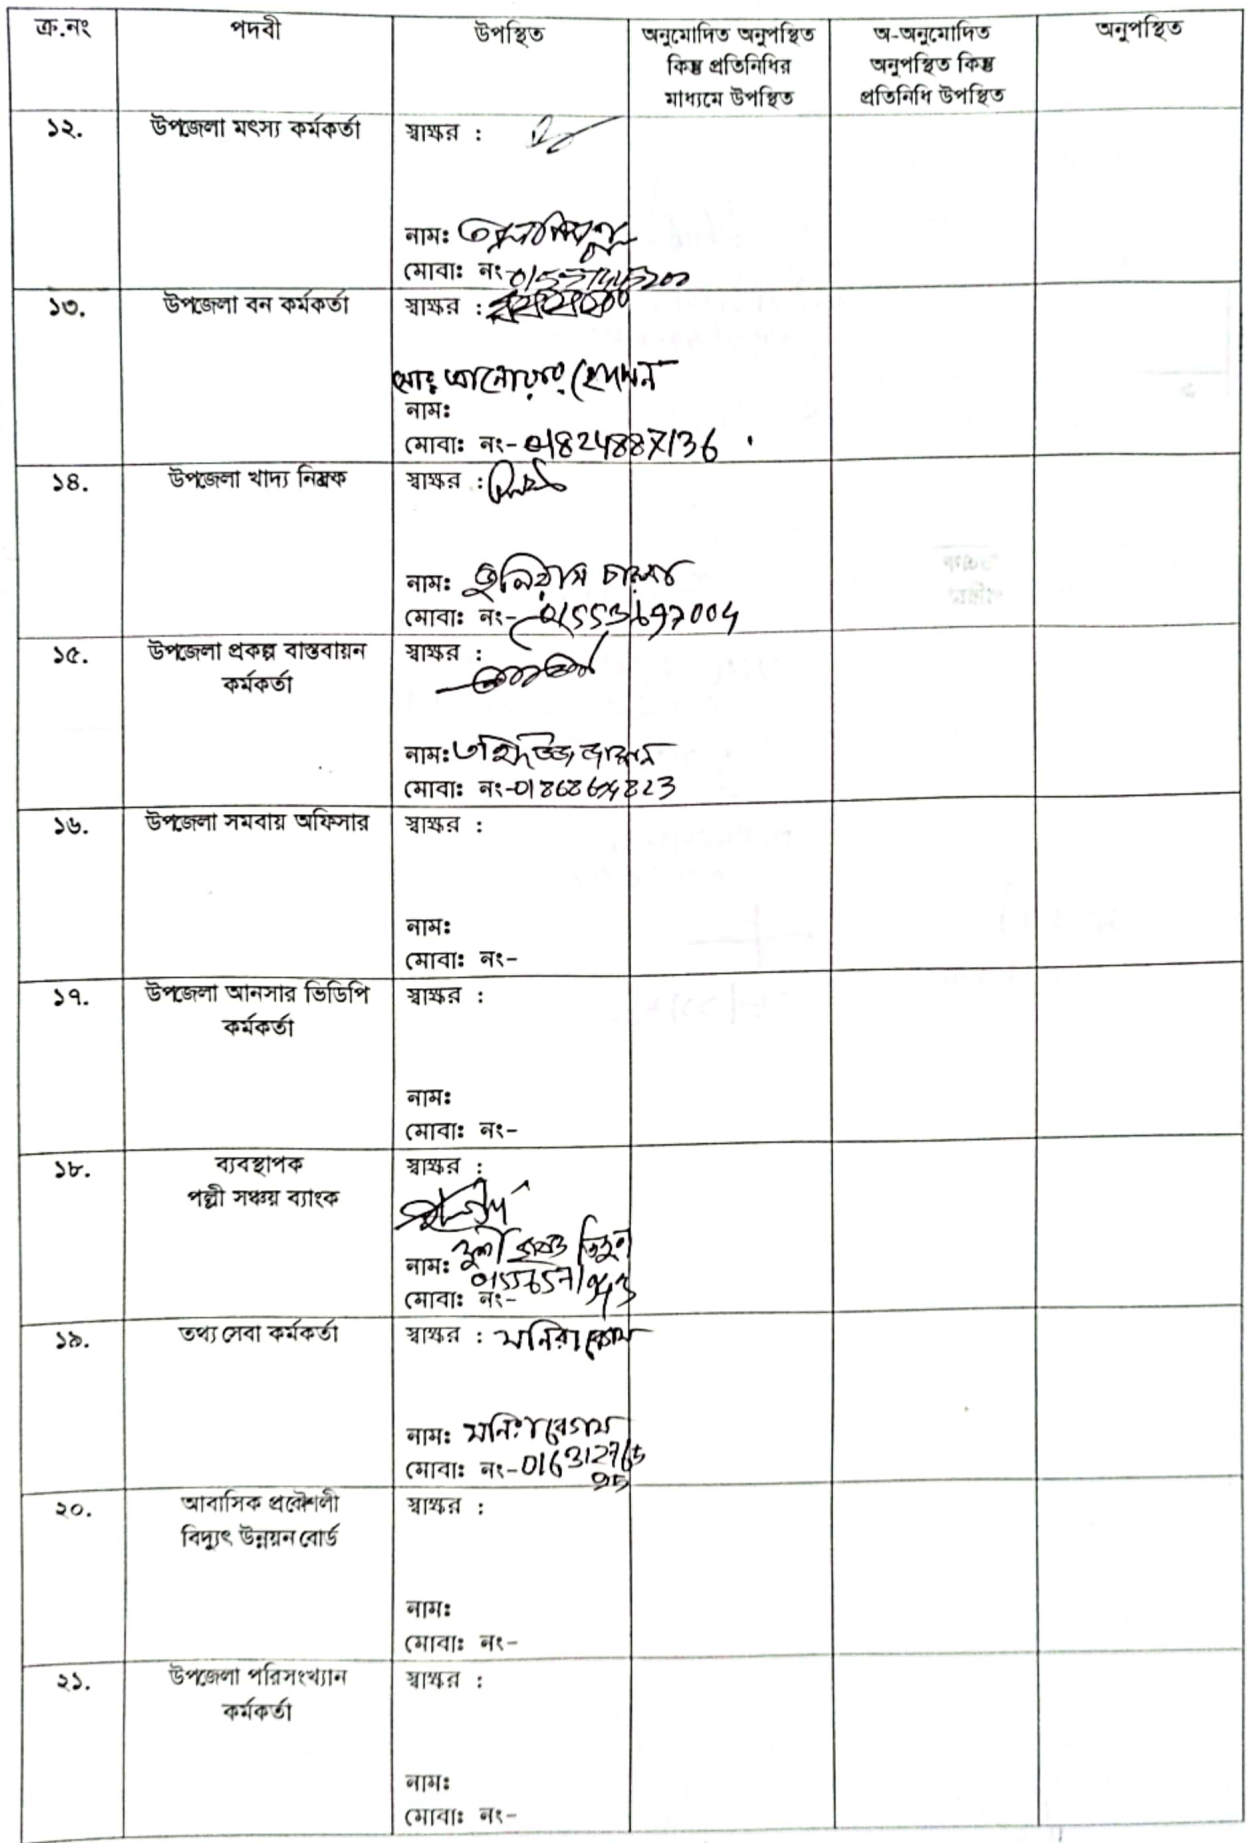 ক্র.নং পদবী উপস্থিত অনুমোদিত অনুপস্থিত কিন্তু প্রতিনিধির মাধ্যমে উপস্থিত অ-অনুমোদিত অনুপস্থিত কিন্তু প্রতিনিধি উপস্থিত অনুপস্থিত
১২. উপজেলা মৎস্য কর্মকর্তা স্বাক্ষর :
নাম:
মোবা: নং-
১৩. উপজেলা বন কর্মকর্তা স্বাক্ষর :
মোঃ আনোয়ার হোসেন
নাম:
মোবা: নং- 01824887136
১৪. উপজেলা খাদ্য নিয়ন্ত্রক স্বাক্ষর :
নাম:
মোবা: নং- 01553697004
১৫. উপজেলা প্রকল্প বাস্তবায়ন স্বাক্ষর :
কর্মকর্তা
নাম:
মোবা: নং-
১৬. উপজেলা সমবায় অফিসার স্বাক্ষর :
নাম:
মোবা: নং-
১৭. উপজেলা আনসার ভিডিপি স্বাক্ষর :
কর্মকর্তা
নাম:
মোবা: নং-
১৮. ব্যবস্থাপক স্বাক্ষর :
পল্লী সঞ্চয় ব্যাংক
নাম:
মোবা: নং-
১৯. তথ্য সেবা কর্মকর্তা স্বাক্ষর : মনিরা বেগম
নাম: মনিরা বেগম
মোবা: নং-
২০. আবাসিক প্রকৌশলী স্বাক্ষর :
বিদ্যুৎ উন্নয়ন বোর্ড
নাম:
মোবা: নং-
২১. উপজেলা পরিসংখ্যান স্বাক্ষর :
কর্মকর্তা
নাম:
মোবা: নং-